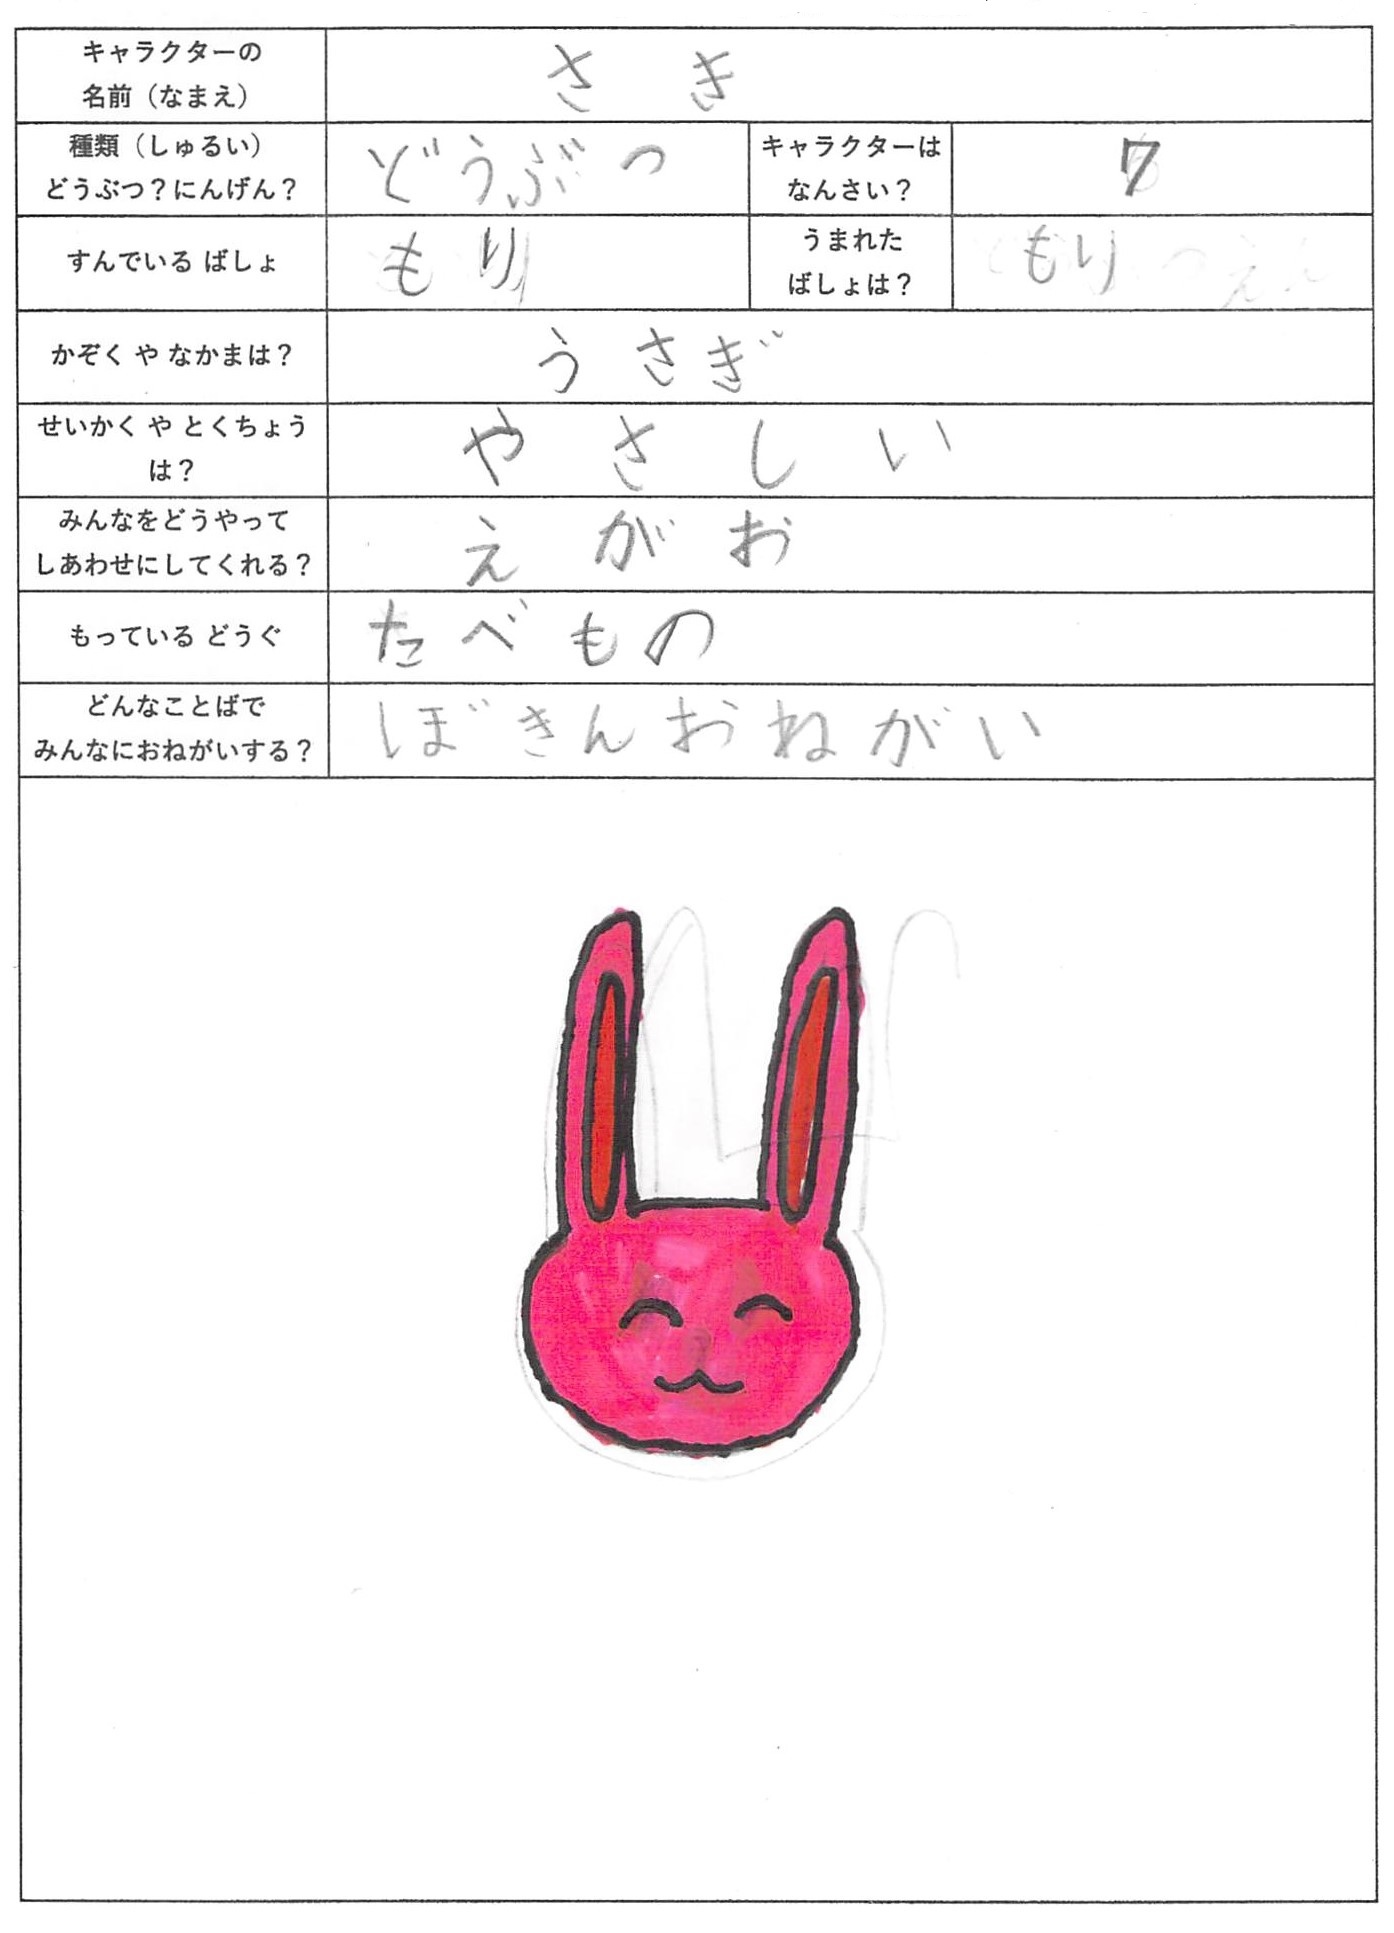 キャラクターの
名前（なまえ）
さき
種類（しゅるい）
どうぶつ？にんげん？
どうぶつ
キャラクターは
なんさい？
7
すんでいる ばしょ
もり
うまれた
ばしょは？
もり
かぞく や なかまは？
うさぎ
せいかく や とくちょう
は？
やさしい
みんなをどうやって
しあわせにしてくれる？
えがお
もっている どうぐ
たべもの
どんなことばで
みんなにおねがいする？
ぼきんおねがい